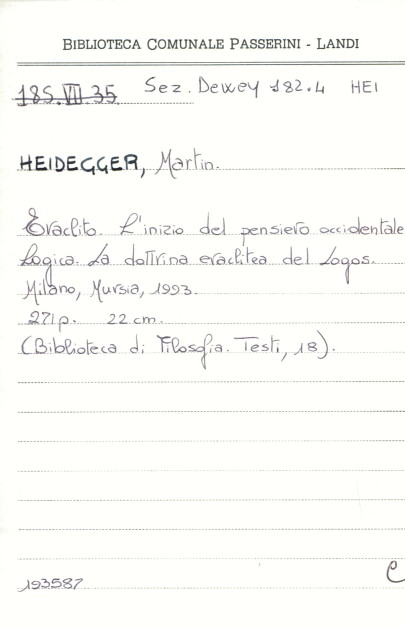 BIBLIOTECA COMUNALE PASSERINI - LANDI
185.VII.35 Sez. Dewey 182.4 HEI
HEIDEGGER, Martin.
Eraclito. L'inizio del pensiero occidentale
Logica. La dottrina eraclitea del Logos.
Milano, Mursia, 1993.
271p. 22 cm.
(Biblioteca di Filosofia. Testi, 18).
C
193587